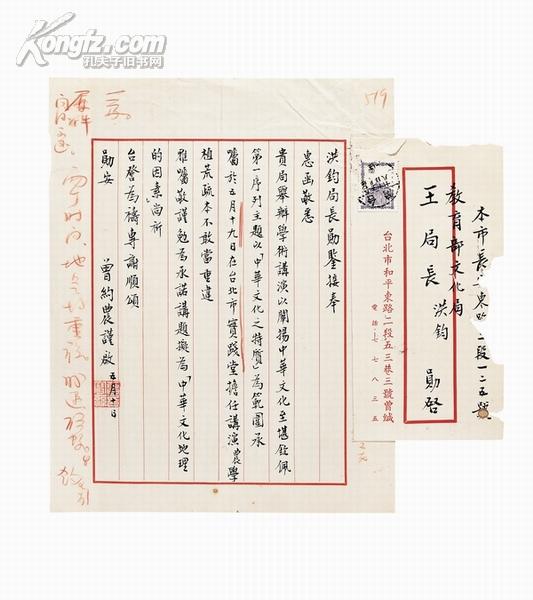 Kongfz.com
孔夫子旧书网
519
洪鈞局長勛鑒接奉
惠函敬悉
貴局舉辦學術講演以闡揚中華文化至堪欽佩
第一序列主題以「中華文化之特質」為範圍承
囑於五月十九日在台北市實踐堂擔任講演農學
植荒疏本不敢當重違
雅囑敬謹勉為承諾講題擬為「中華文化地理
的因素」尚祈
台詧為禱專謝順頌
勛安
曾約農謹啟 五月十日
本市長東路二段一二五號
教育部文化局
王局長 洪鈞 勛啓
台北市和平東路二段五三巷三號曾緘
電話:七七八三五